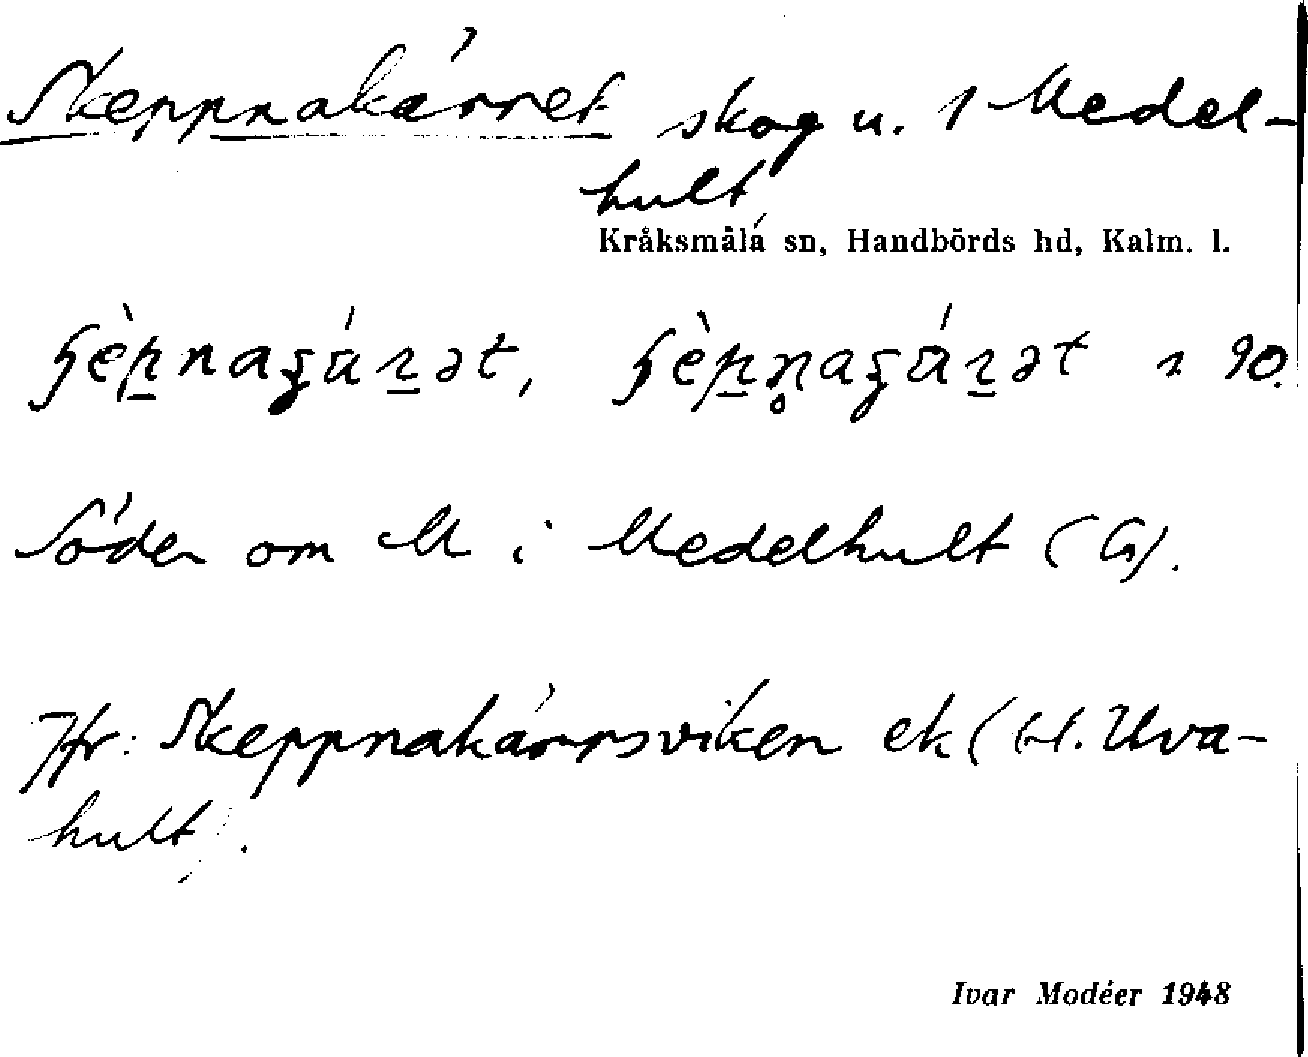 Skeppnakärret skog u. 1 Medel-
hult
Kråksmåla sn, Handbörds hd, Kalm. l.
Söder om M i Medelhult (G).
Jfr: Skeppnakärrsviken ek (H. Uva-
hult).
Ivar Modéer 1948